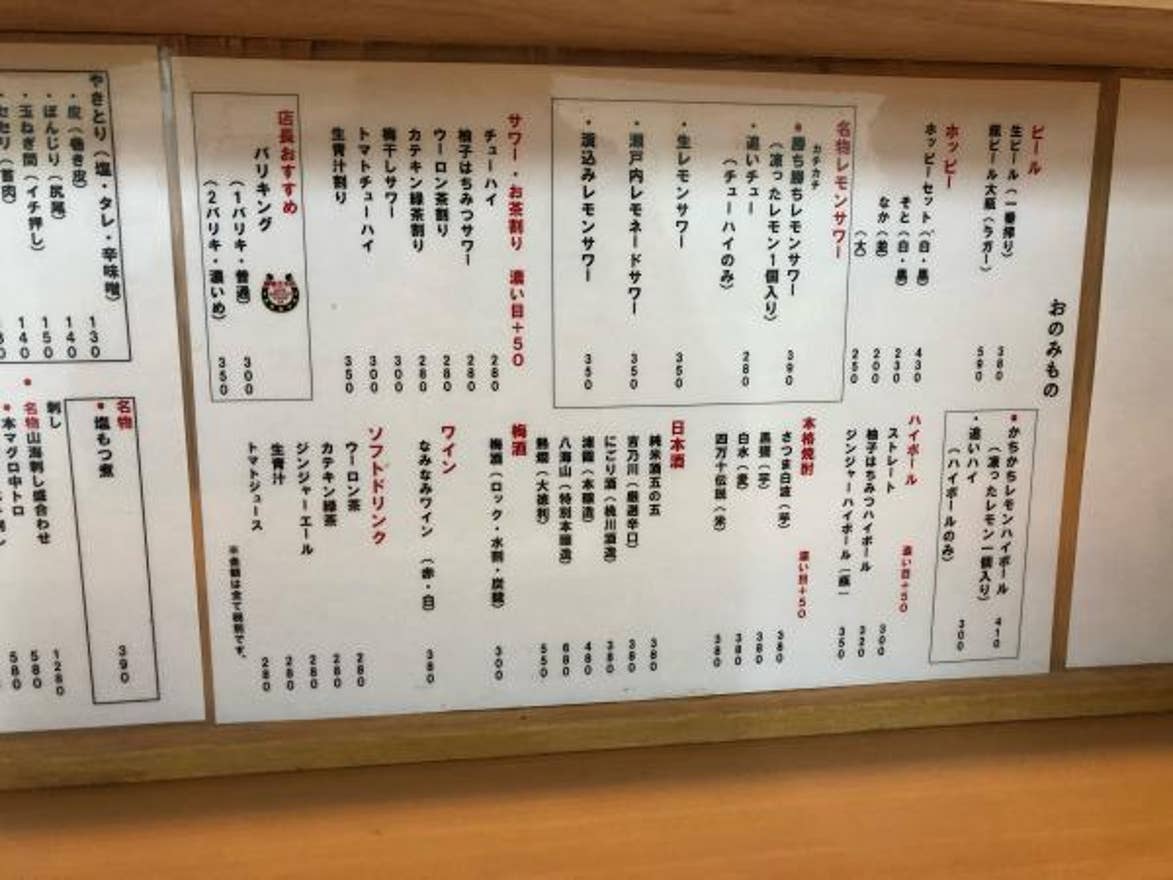 おのみもの
ビール
生ビール(一番搾り) 380
瓶ビール大瓶(ラガー) 590
ホッピー
ホッピーセット(白・黒) 430
そと(白・黒) 230
なか(並) 200
(大) 250
名物レモンサワー
カチカチ
勝ち勝ちレモンサワー 390
(凍ったレモン1個入り)
・追いチュー 280
(チューハイのみ)
・生レモンサワー 350
・瀬戸内レモネードサワー 350
・漬込みレモンサワー 350
サワー・お茶割り 濃い目+50
チューハイ 280
柚子はちみつサワー 280
ウーロン茶割り 280
カテキン緑茶割り 280
梅干しサワー 300
トマトチューハイ 300
生青汁割り 350
店長おすすめ
バリキング
(1バリキ・普通) 300
(2バリキ・濃いめ) 350
かちかちレモンハイボール 410
(凍ったレモン一個入り)
・追いハイ 300
(ハイボールのみ)
ハイボール 濃い目+50
ストレート 300
柚子はちみつハイボール 320
ジンジャーハイボール 350
本格焼酎 濃い目+50
さつま白波(芋) 380
黒霧(芋) 380
白水(麦) 380
四万十伝説(米) 380
日本酒
純米酒五の五 380
吉乃川(厳選辛口) 380
にごり酒(桃川酒造) 380
(本醸造) 480
八海山(特別本醸造) 680
熱燗(大徳利) 550
梅酒
梅酒(ロック・水割・炭酸) 300
ワイン
なみなみワイン (赤・白) 380
ソフトドリンク
ウーロン茶 280
カテキン緑茶 280
ジンジャーエール 280
生青汁 280
トマトジュース 280
※金額は全て税別です。
やきとり(塩・タレ・辛味噌) 130
・皮(巻き皮) 140
・ぼんじり(尻尾) 150
・玉ねぎ間(イチ押し) 140
・セセリ(首肉)
名物
・塩もつ煮 390
刺し
名物山海刺し盛合わせ 1280
本マグロ中トロ 580
580